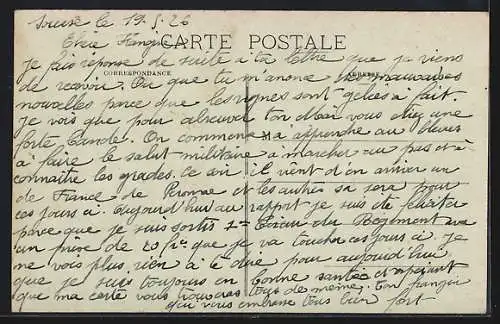 Sousse le 19.5.26
Chère Françoise
CARTE POSTALE
CORRESPONDANCE
ADRESSE
je fais réponse de suite à ta lettre que je viens
de recevoir. Ou que tu m'anonce de mauvaises
nouvelles parce que les vignes sont gelées à fait.
Je vois que pour abreuver ton Mari vous etiez une
forte bande. On commence à apprendre au bleus
à faire le salut militaire à marcher au pas et à
connaître les grades. Ce soir il vient d'en arriver un
de France de et les autres sa sera pour
ces jours ci. Aujourd'hui au rapport je suis été felicité
parce que je suis sortis 1er du Régiment
un prise de 20 frs que je va toucher ces jours ci. Je
ne vois plus rien à te dire pour aujourd'hui
que je suis toujours en bonne santée et esperant
que ma carte vous trouvera tous de même. Ton
qui vous embrasse tous bien fort